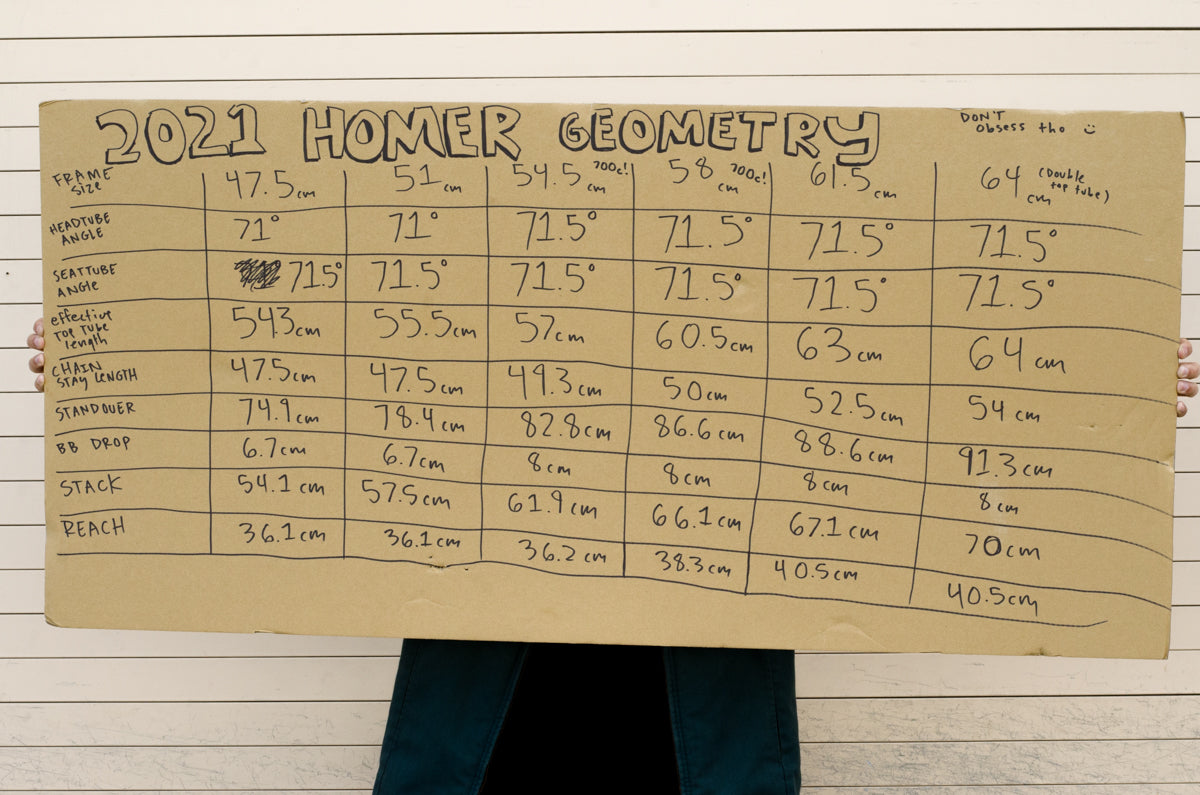 2021 HOMER GEOMETRY
DON'T
obsess tho
FRAME
SIZE
47.5cm 51cm 54.5cm 700c! 58cm 700c! 61.5cm 64cm (Double
top tube)
HEADTUBE
ANGLE
71° 71° 71.5° 71.5° 71.5° 71.5°
SEATTUBE
ANGLE
71.5° 71.5° 71.5° 71.5° 71.5° 71.5°
effective
TOP TUBE
length
54.3cm 55.5cm 57cm 60.5cm 63cm 64cm
CHAIN
STAY LENGTH
47.5cm 47.5cm 49.3cm 50cm 52.5cm 54cm
STANDOVER
74.9cm 78.4cm 82.8cm 86.6cm 88.6cm 91.3cm
BB DROP
6.7cm 6.7cm 8cm 8cm 8cm 8cm
STACK
54.1cm 57.5cm 61.9cm 66.1cm 67.1cm 70cm
REACH
36.1cm 36.1cm 36.2cm 38.3cm 40.5cm 40.5cm